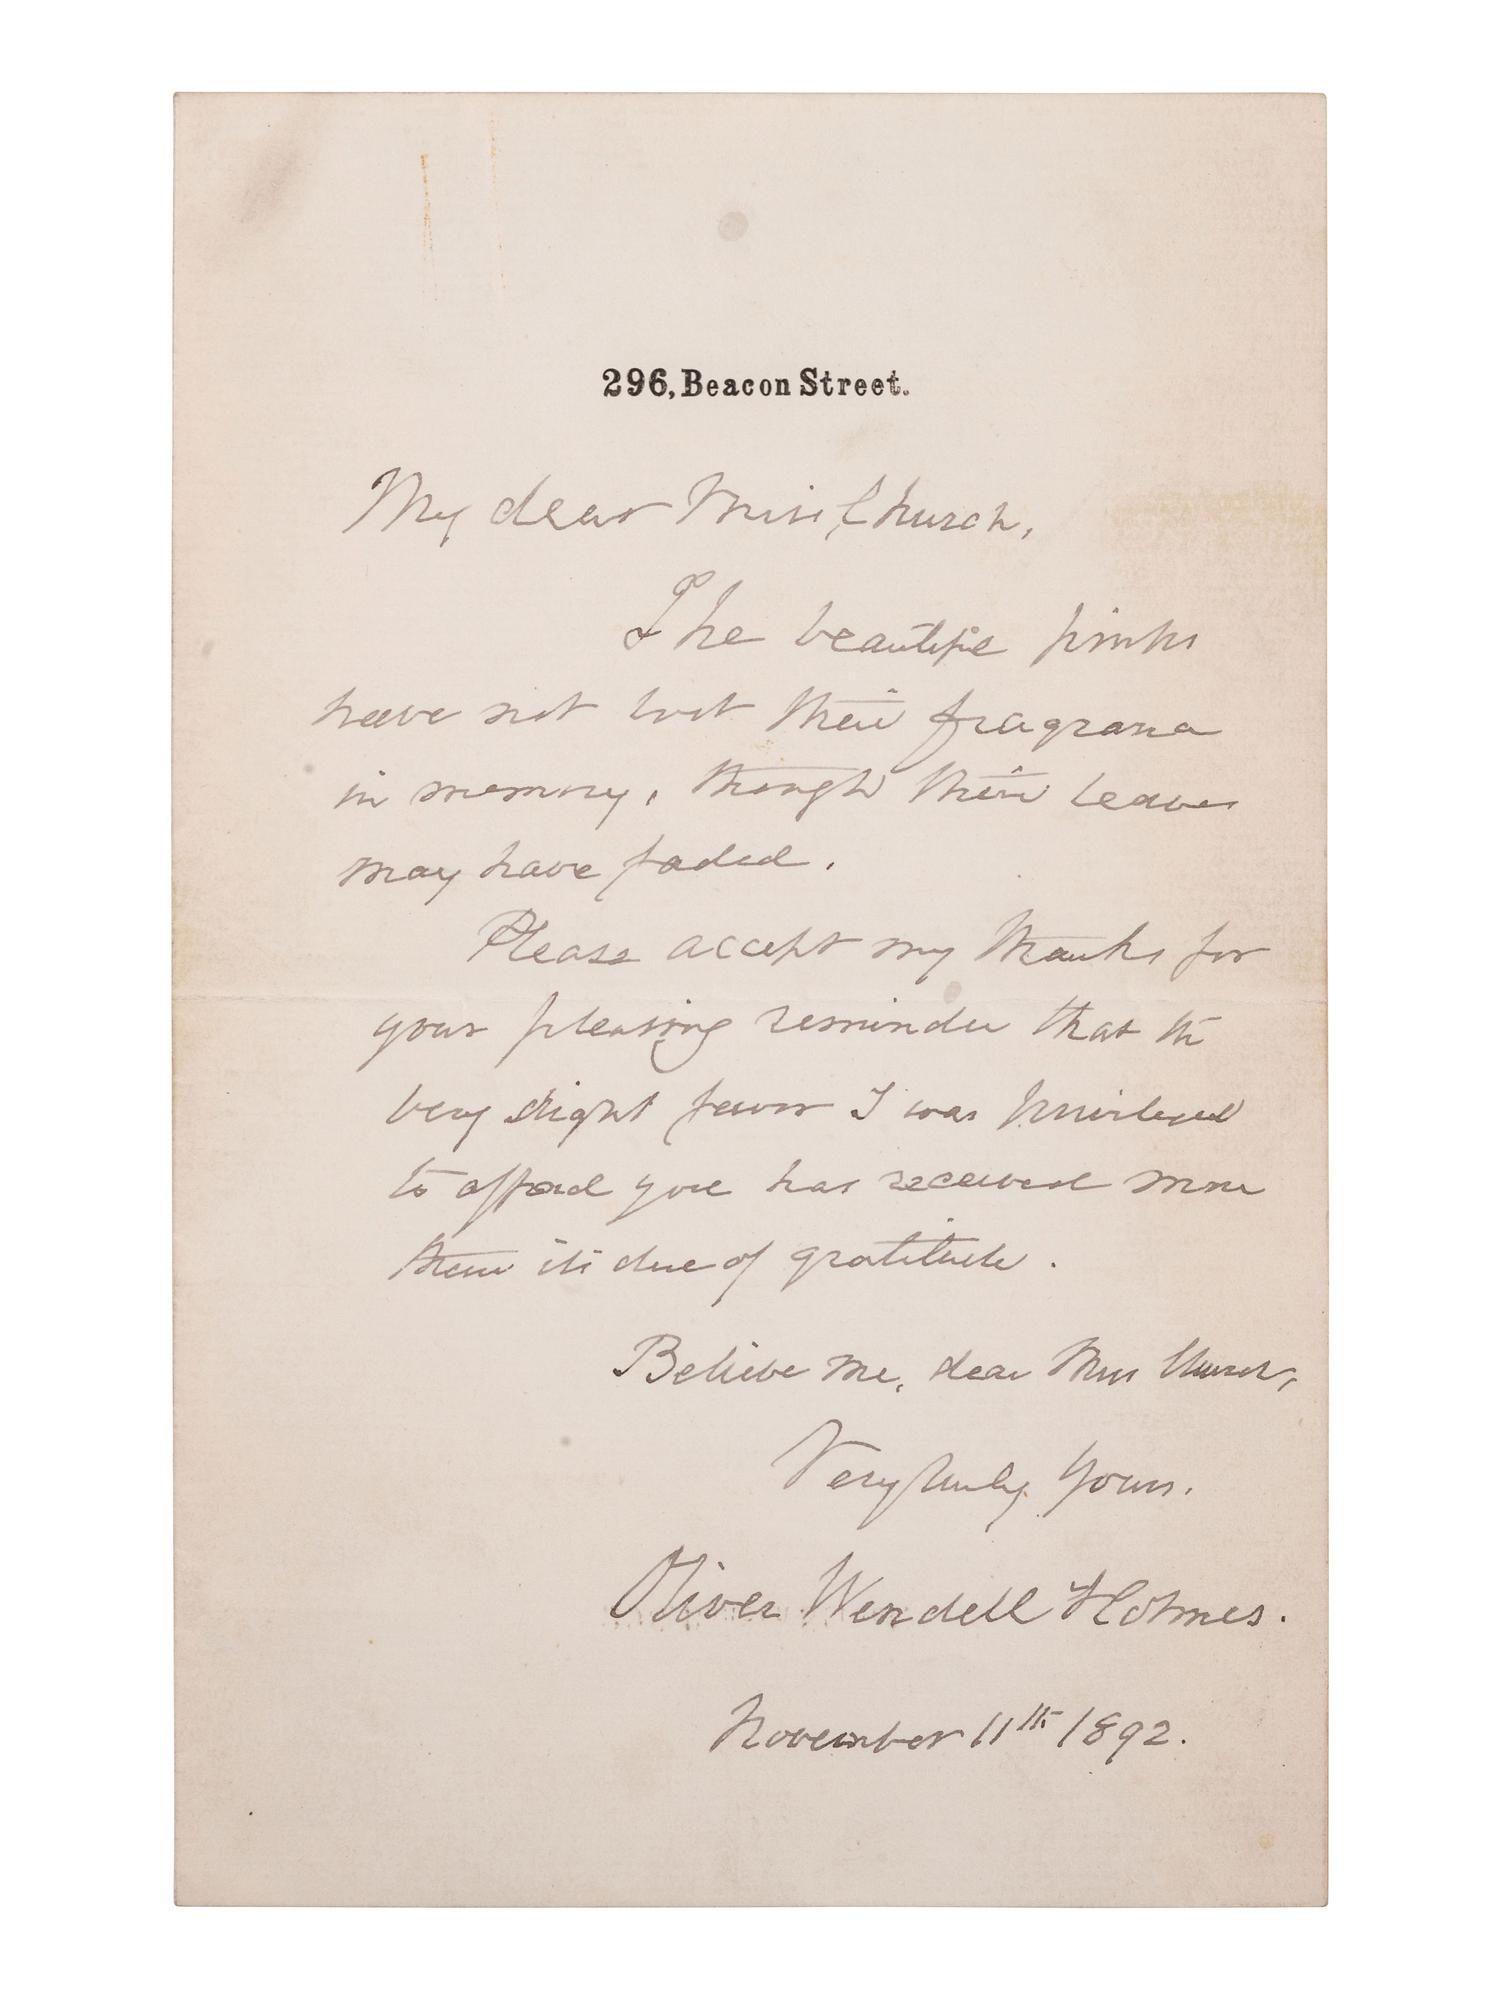 296, Beacon Street.
My dear Miss Church,
The beautiful pinks
have not lost their fragrance
in memory, though their leaves
may have faded.
Please accept my thanks for
your pleasing reminder that the
very slight favor I was privileged
to afford you has received more
than its due of gratitude.
Believe me, dear Miss Church,
Very truly Yours,
Oliver Wendell Holmes.
November 11th 1892.